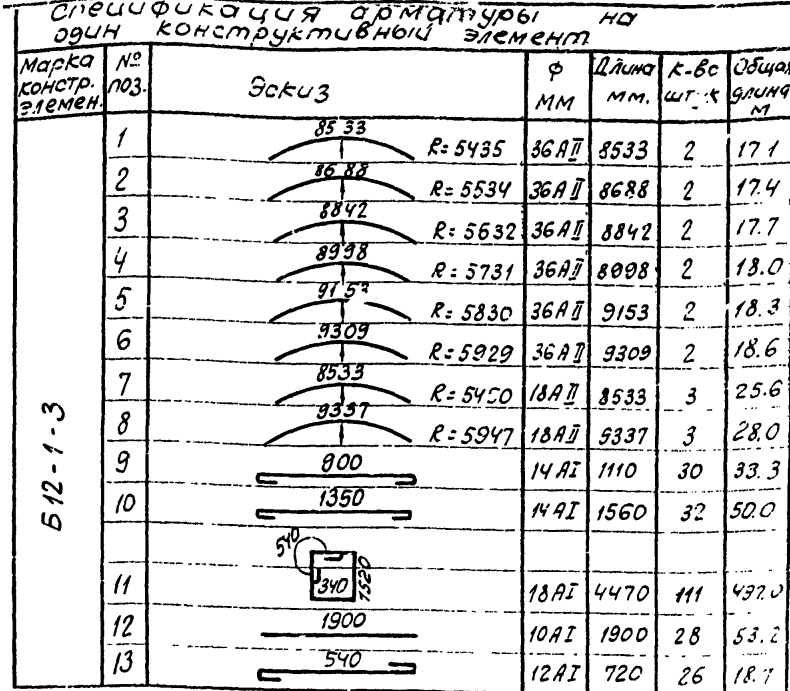 Спецификация арматуры на
один конструктивный элемент
Марка констр. элемен. № поз. Эскиз ф мм Длина мм. К-во штук Общая длина м
Б12-1-3
1 8533 R=5435 36АII 8533 2 17.1
2 8688 R=5534 36АII 8688 2 17.4
3 8842 R=5632 36АII 8842 2 17.7
4 8998 R=5731 36АII 8998 2 18.0
5 9153 R=5830 36АII 9153 2 18.3
6 9309 R=5929 36АII 9309 2 18.6
7 8533 R=5450 18АII 8533 3 25.6
8 9337 R=5947 18АII 9337 3 28.0
9 900 14АI 1110 30 33.3
10 1350 14АI 1560 32 50.0
11 540 340 1520 18АI 4470 111 497.0
12 1900 10АI 1900 28 53.2
13 540 12АI 720 26 18.7